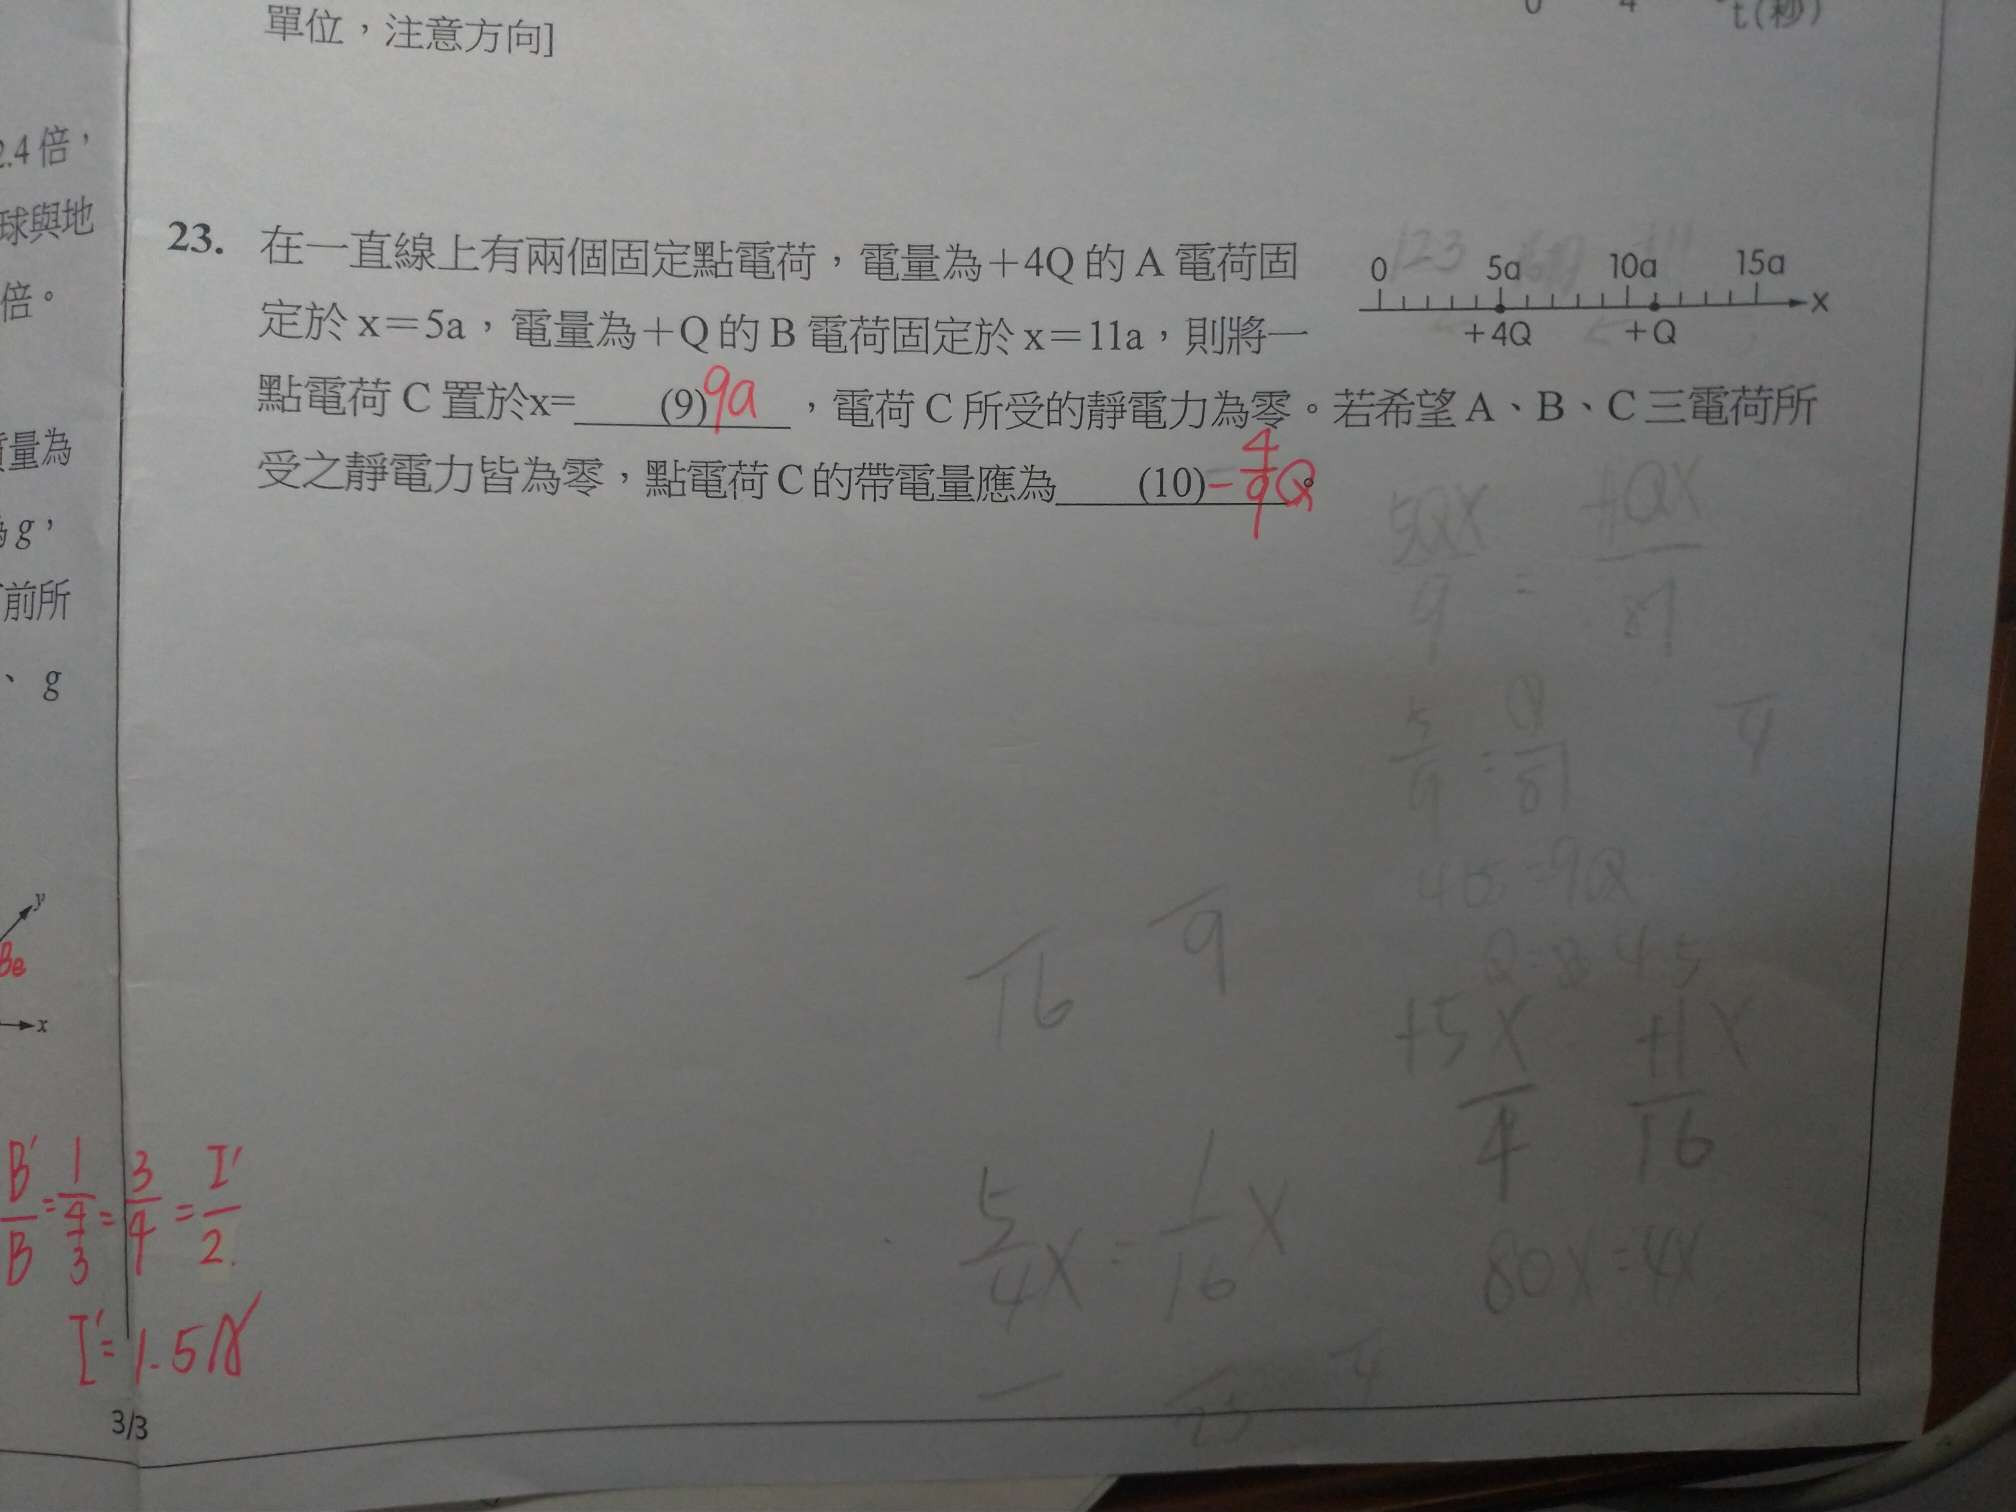 單位，注意方向]
0 4 t(秒)
2.4倍，
球與地
倍。
質量為
為g，
前所
、g
y
Be
x
23. 在一直線上有兩個固定點電荷，電量為＋4Q的A電荷固
定於x＝5a，電量為＋Q的B電荷固定於x＝11a，則將一
點電荷C置於x= (9) 9a ，電荷C所受的靜電力為零。若希望A、B、C三電荷所
受之靜電力皆為零，點電荷C的帶電量應為 (10) -4/9 Q 。
123
0 5a 10a 15a
x
+4Q +Q
5QX/9 = +QX/81
5/9 = Q/81
4
45=9Q
16 9
+5X/4 +1X/16
5/4X = 1/16X
80X=4X
B'/B = 1/(4/3) = 3/4 = I'/2
I'=1.5A
3/3